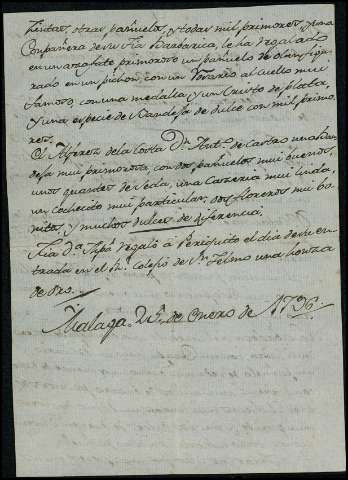 otras, pañuelos, y todas mil primores, y una
Compañera de su Tia Barbarica, le ha regalado
en un azafate primoroso un pañuelo de olan figu-
rado en un pichon, con un Rosario al cuello mui
famoso, con una medalla, y un Cristo de plata,
y una especie de Bandeja de dulce con mil primo
res.
El Alferez de la Costa Dn. Anto. de Castro una Ban
deja mui primorosa, con dos pañuelos mui buenos,
unos guantes de seda, una mui linda,
un cochecito mui particular, dos floreros mui bo
nitos, y muchos dulces de diferencia.
Tia Da. Pepa regaló à Periquito el dia de su en
trada en el Rl. Colegio de Sn. Telmo una honza
de Oro.
Malaga de Enero de 1796.